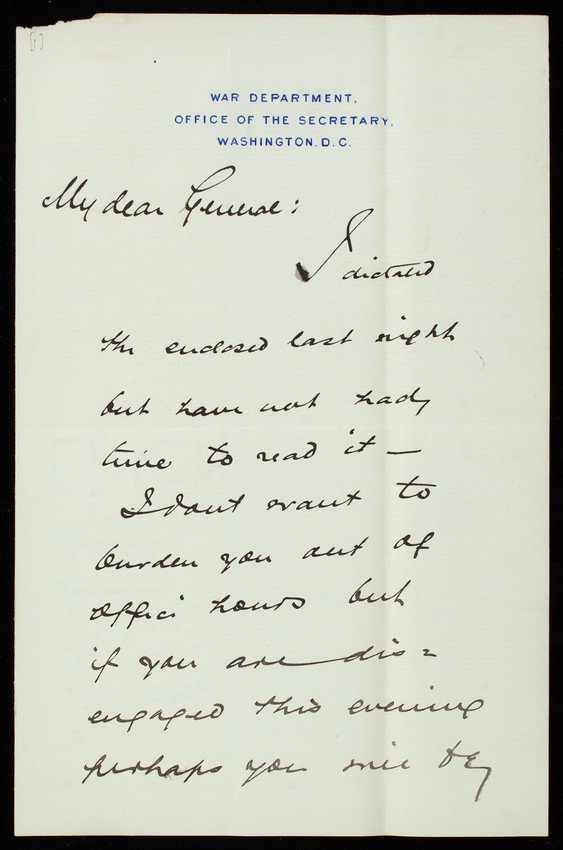 [1]
WAR DEPARTMENT,
OFFICE OF THE SECRETARY,
WASHINGTON. D. C.
My dear General:
I dictated
the enclosed last night
but have not had
time to read it —
I dont want to
burden you out of
office hours but
if you are dis=
engaged this evening
perhaps you will